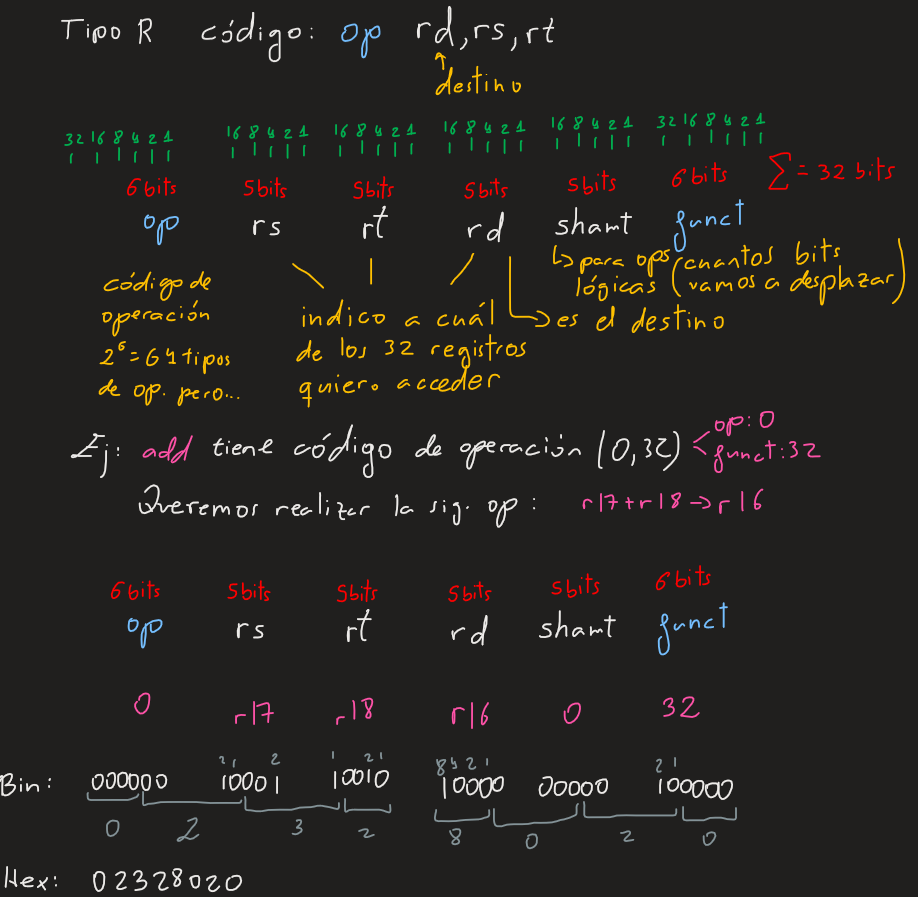 Tipo R código: op rd,rs,rt
destino
32 16 8 4 2 1 16 8 4 2 1 16 8 4 2 1 16 8 4 2 1 16 8 4 2 1 32 16 8 4 2 1
6bits 5bits 5bits 5bits 5bits 6bits Σ = 32 bits
op rs rt rd shamt funct
código de operación 2^6 = 64 tipos de op. pero...
indico a cuál de los 32 registros quiero acceder
es el destino
para ops lógicas (cuantos bits vamos a desplazar)
Ej: add tiene código de operación (0,32) op:0 funct:32
Queremos realizar la sig. op: r17+r18→r16
6bits 5bits 5bits 5bits 5bits 6bits
op rs rt rd shamt funct
0 r17 r18 r16 0 32
2 1 2 1 2 1 8 4 2 1 2 1
Bin: 000000 10001 10010 10000 00000 100000
0 2 3 2 8 0 2 0
Hex: 02328020